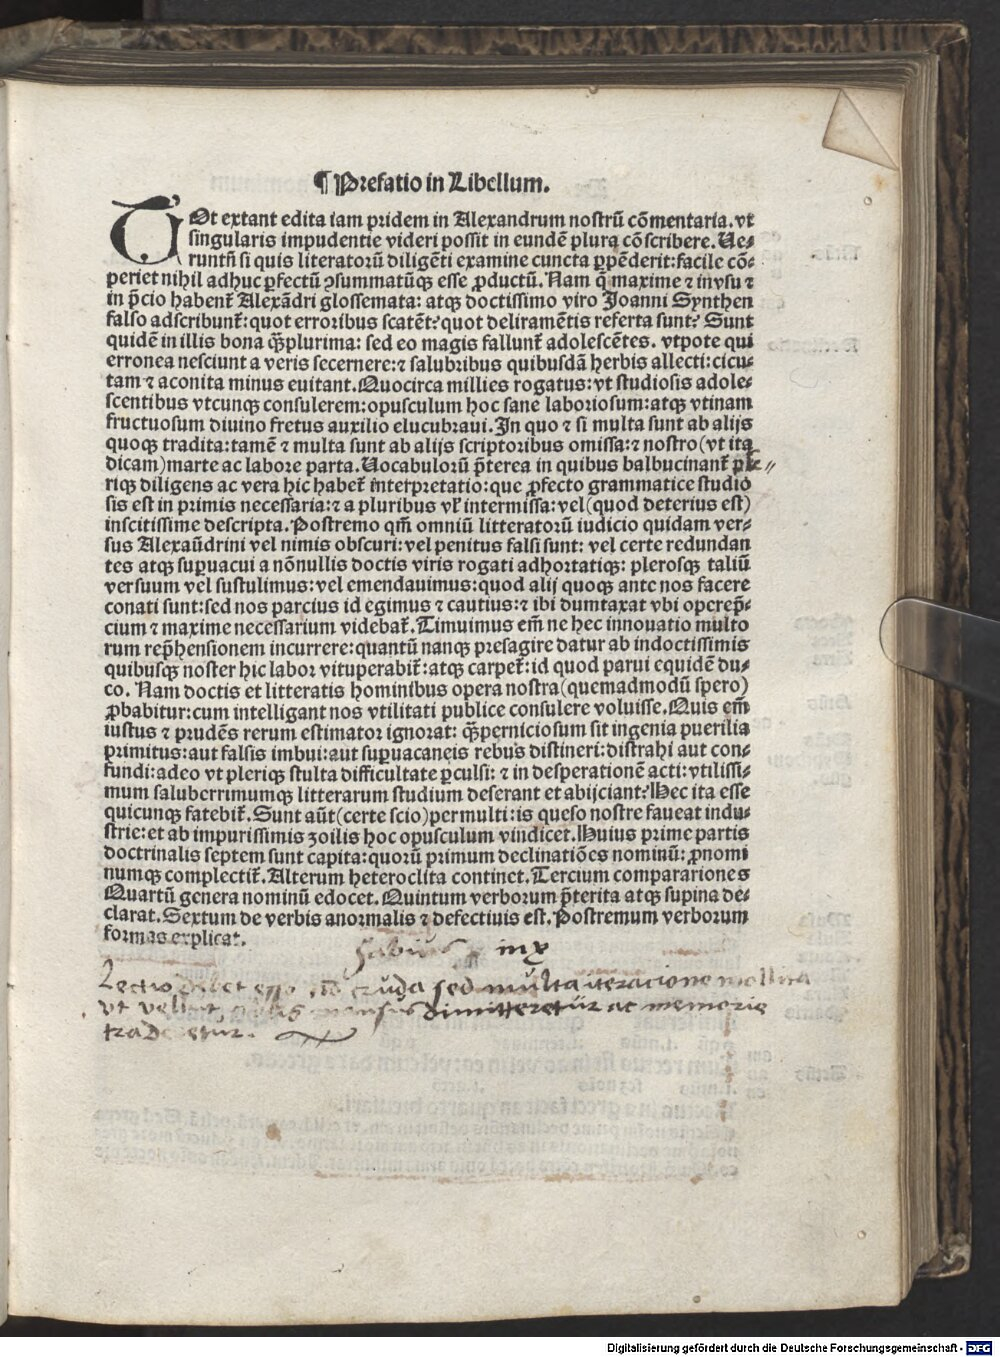 ¶ Prefatio in Libellum.
TOt extant edita iam pridem in Alexandrum nostrū cōmentaria. vt
singularis impudentie videri possit in eundē plura cōscribere. Ue⸗
runtñ si quis literatorū diligēti examine cuncta ꝑpēderit: facile cō⸗
periet nihil adhuc ꝑfectū ↄsummatūqꝫ esse ꝓductū. Nam q̄ maxime ⁊ in vsu ⁊
in p̄cio habent᷑ Alexādri glossemata: atqꝫ doctissimo viro Joanni Synthen
falso adscribunt᷑: quot erroribus scatēt? quot deliramētis referta sunt? Sunt
quidē in illis bona qꝫ̄plurima: sed eo magis fallunt᷑ adolescētes. vtpote qui
erronea nesciunt a veris secernere: ⁊ salubribus quibusdā herbis allecti: cicu⸗
tam ⁊ aconita minus euitant. Quocirca millies rogatus: vt studiosis adole⸗
scentibus vtcunqꝫ consulerem: opusculum hoc sane laboriosum: atqꝫ vtinam
fructuosum diuino fretus auxilio elucubraui. In quo ⁊ si multa sunt ab alijs
quoqꝫ tradita: tamē ⁊ multa sunt ab alijs scriptoribus omissa: ⁊ nostro (vt ita
dicam) marte ac labore parta. Uocabulorū p̄terea in quibus balbucinant᷑ ple⸗
riqꝫ diligens ac vera hic habet᷑ interpretatio: que ꝓfecto grammatice studio
sis est in primis necessaria: ⁊ a pluribus vl᷑ intermissa: vel (quod deterius est)
inscitissime descripta. Postremo qm̄ omniū litteratorū iudicio quidam ver⸗
sus Alexaūdrini vel nimis obscuri: vel penitus falsi sunt: vel certe redundan
tes atqꝫ suꝑuacui a nōnullis doctis viris rogati adhortatiqꝫ: plerosqꝫ taliū
versuum vel sustulimus: vel emendauimus: quod alij quoqꝫ ante nos facere
conati sunt: sed nos parcius id egimus ⁊ cautius: ⁊ ibi dumtaxat vbi operep̄⸗
cium ⁊ maxime necessarium videbat᷑. Timuimus em̄ ne hec innouatio multo
rum rep̄hensionem incurrere: quantū nanqꝫ presagire datur ab indoctissimis
quibusqꝫ noster hic labor vituperabit᷑: atqꝫ carpet᷑: id quod parui equidē du⸗
co. Nam doctis et litteratis hominibus opera nostra (quemadmodū spero)
ꝓbabitur: cum intelligant nos vtilitati publice consulere voluisse. Quis em̄
iustus ⁊ prudēs rerum estimator ignorat: qꝫ̄ perniciosum sit ingenia puerilia
primitus: aut falsis imbui: aut suꝑuacaneis rebus distineri: distrahi aut con⸗
fundi: adeo vt pleriqꝫ stulta difficultate ꝑculsi: ⁊ in desperationē acti: vtilissi⸗
mum saluberrimumqꝫ litterarum studium deserant et abijciant? Hec ita esse
quicunqꝫ fatebit᷑. Sunt aūt (certe scio) permulti: is queso nostre faueat indu⸗
strie: et ab impurissimis zoilis hoc opusculum vindicet. Huius prime partis
doctrinalis septem sunt capita: quorū primum declinatiōes nominū: ꝓnomi
numqꝫ complectit᷑. Alterum heteroclita continet. Tercium comparariones
Quartū genera nominū edocet. Quintum verborum p̄terita atqꝫ supina de⸗
clarat. Sextum de verbis anormalis ⁊ defectiuis est. Postremum verborum
formas explicat.
fabius
Lectio debet esse cruda sed multa iteracione mollita
vt velut dimitteretur ac memorie
traderetur.
Digitalisierung gefördert durch die Deutsche Forschungsgemeinschaft - DFG